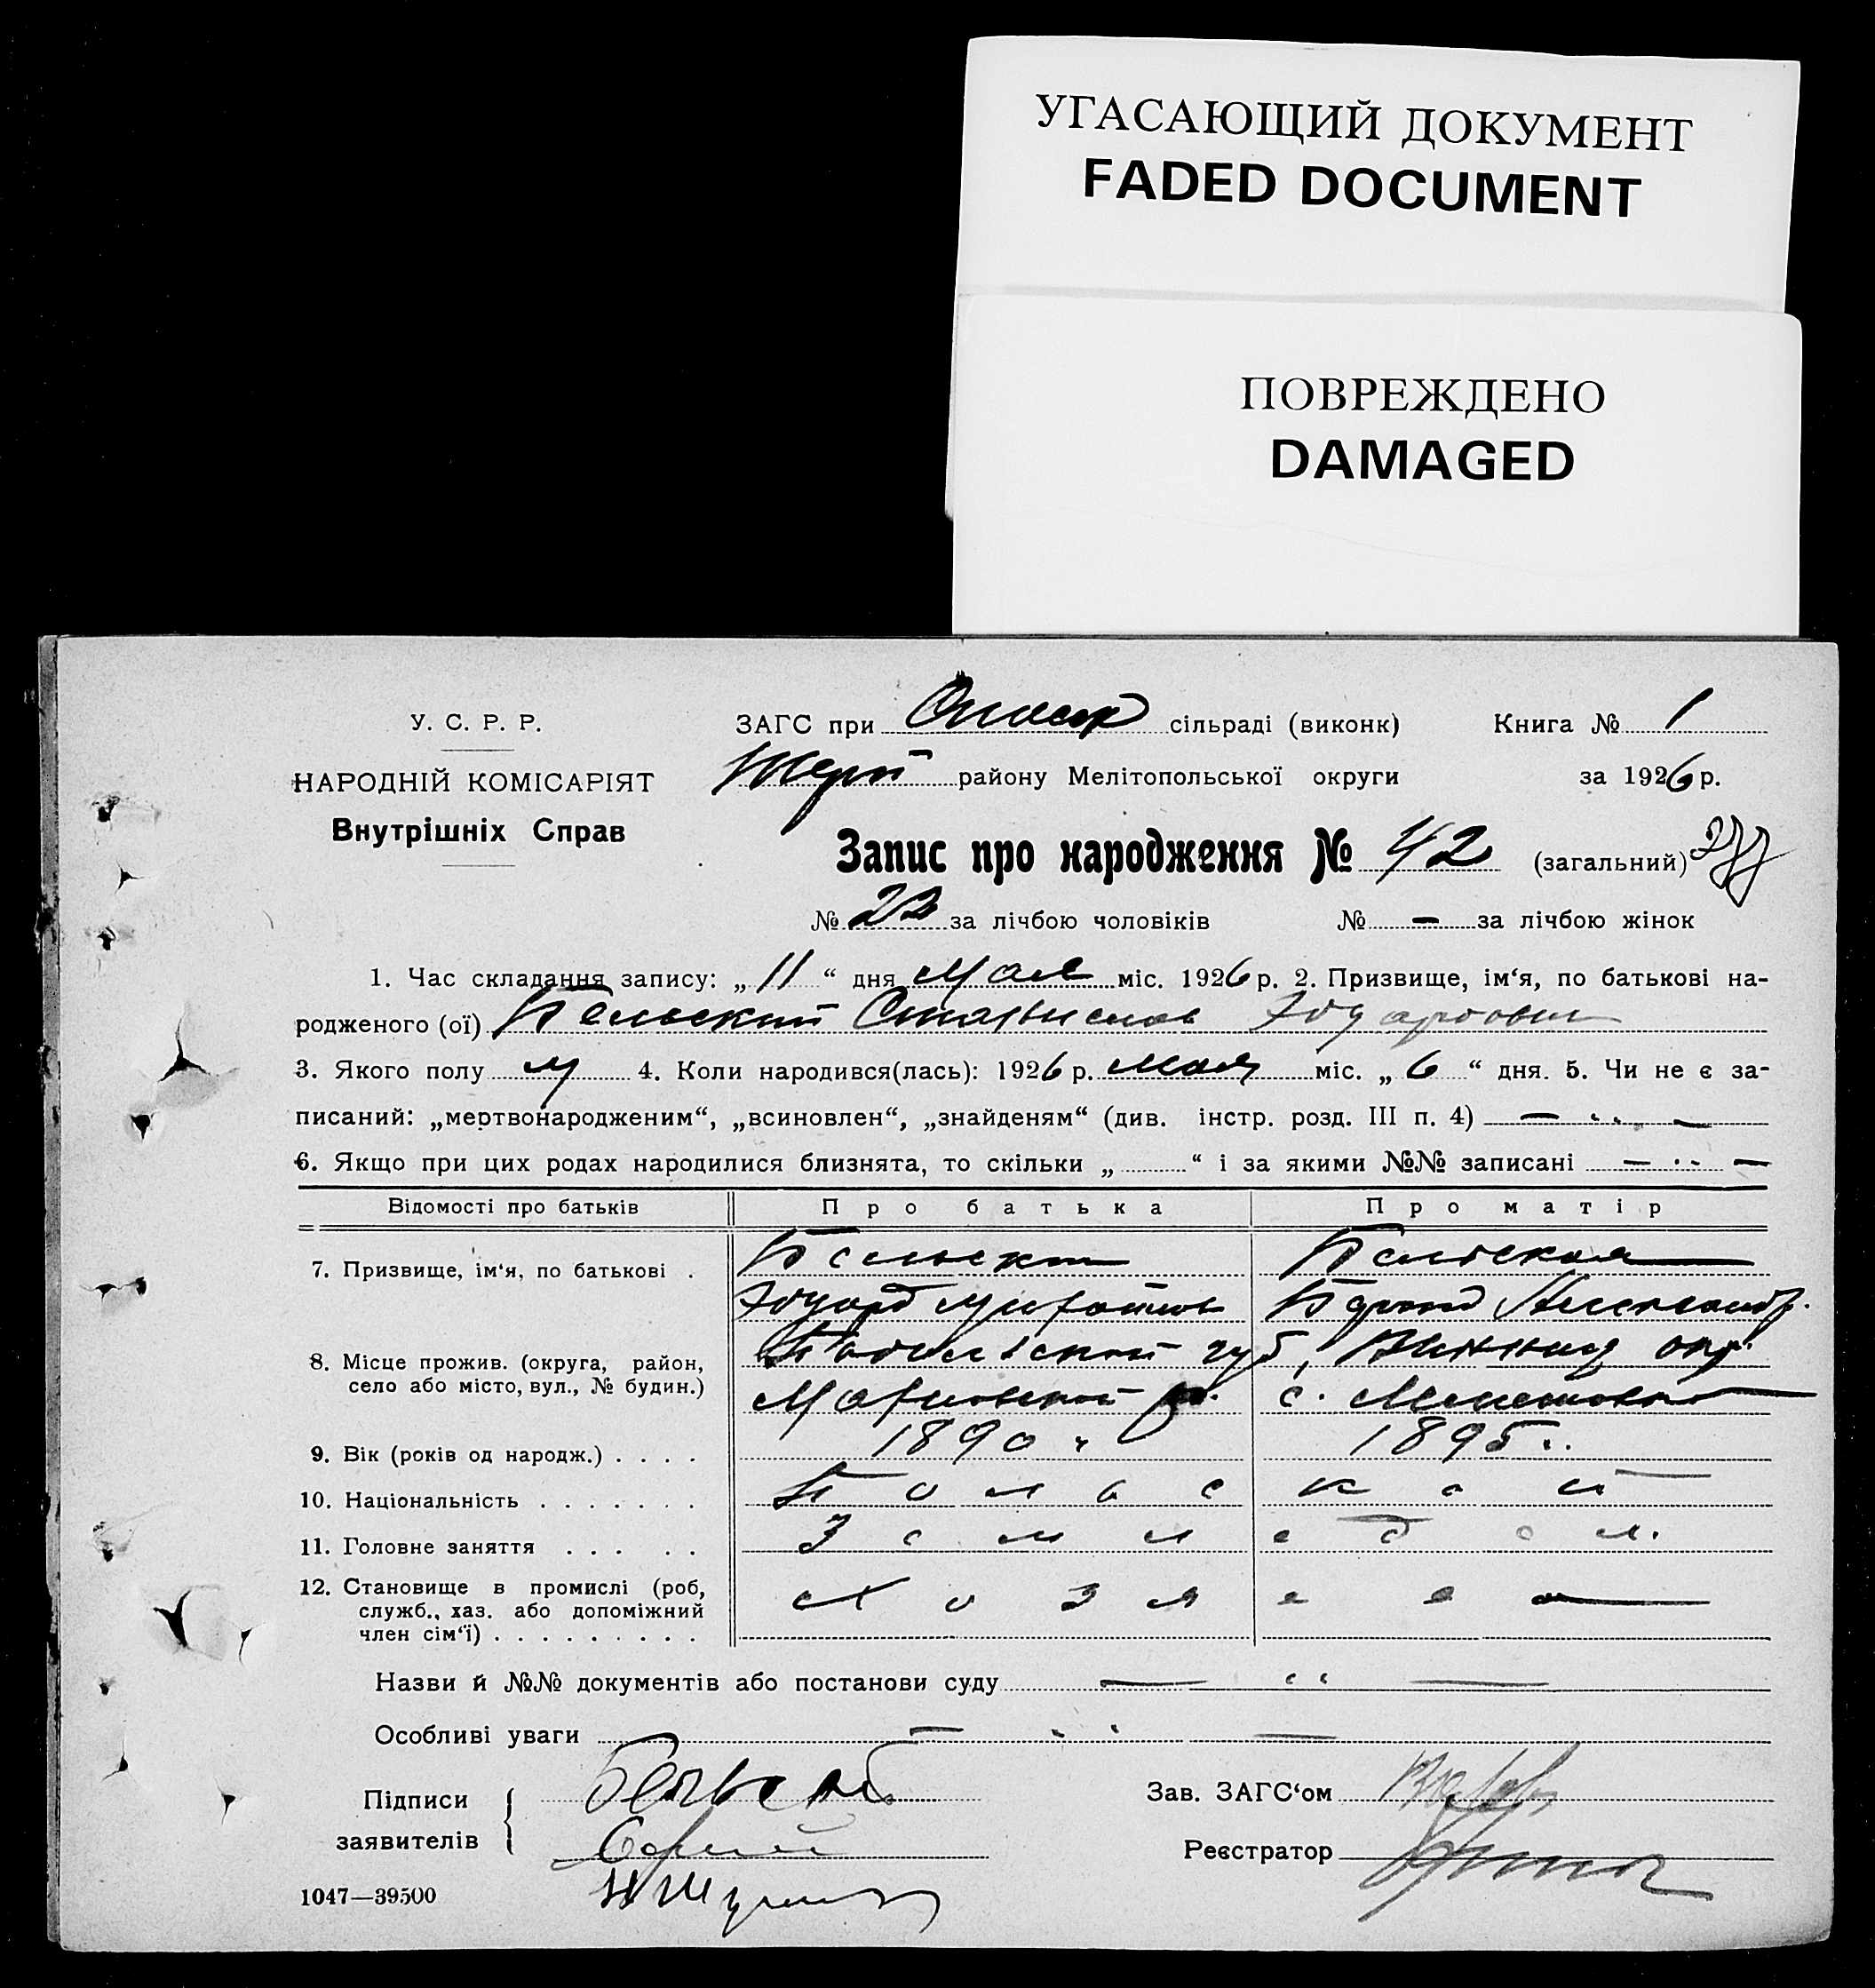 УГАСАЮЩИЙ ДОКУМЕНТ
FADED DOCUMENT
ПОВРЕЖДЕНО
DAMAGED
У. С. Р. Р.
НАРОДНІЙ КОМІСАРІЯТ
Внутрішніх Справ
ЗАГС при сільраді (виконк) Книга № 1
району Мелітопольської округи за 1926 р.
Запис про народження № 42 (загальний)
№ 22 за лічбою чоловіків № — за лічбою жінок
1. Час складання запису: „ 11 “ дня мая міс. 1926 р. 2. Призвище, ім‘я, по батькові на-
родженого (ої) Бельский Станислав Эдуардович
3. Якого полу м 4. Коли народився(лась): 1926 р. мая міс. „ 6 “ дня. 5. Чи не є за-
писаний: „мертвонародженим“, „всиновлен“, „знайденям“ (див. інстр. розд. III п. 4) — „ —
6. Якщо при цих родах народилися близнята, то скільки „ “ і за якими №№ записані — „ —
Відомості про батьків Про батька Про матір
7. Призвище, ім‘я, по батькові . Бельский Бельская
Эдуард
8. Місце прожив. (округа, район, Подольской губ, Винниц окр.
село або місто, вул., № будин.) с.
9. Вік (років од народж.) . . . . 1890 1895
10. Національність . . . . . . . Польской
11. Головне заняття . . . . . Земледел.
12. Становище в промислі (роб,
служб., хаз. або допоміжний
член сім‘ї) . . . . . . . . . Хозяева
Назви й №№ документів або постанови суду — „ —
Особливі уваги — „ —
Підписи Бельский Зав. ЗАГС‘ом
заявителів Реєстратор
1047—39500